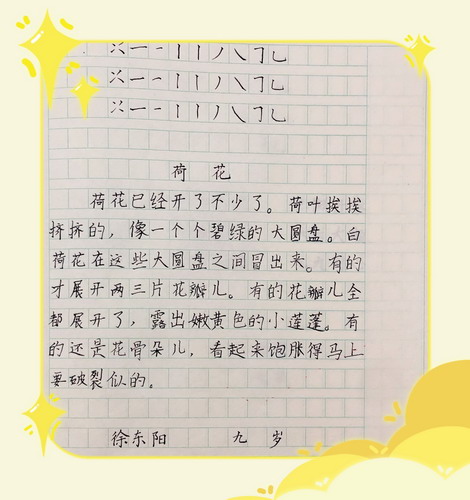 荷 花
荷花已经开了不少了。荷叶挨挨
挤挤的，像一个个碧绿的大圆盘。白
荷花在这些大圆盘之间冒出来。有的
才展开两三片花瓣儿。有的花瓣儿全
都展开了，露出嫩黄色的小莲蓬。有
的还是花骨朵儿，看起来饱胀得马上
要破裂似的。
徐东阳 九 岁